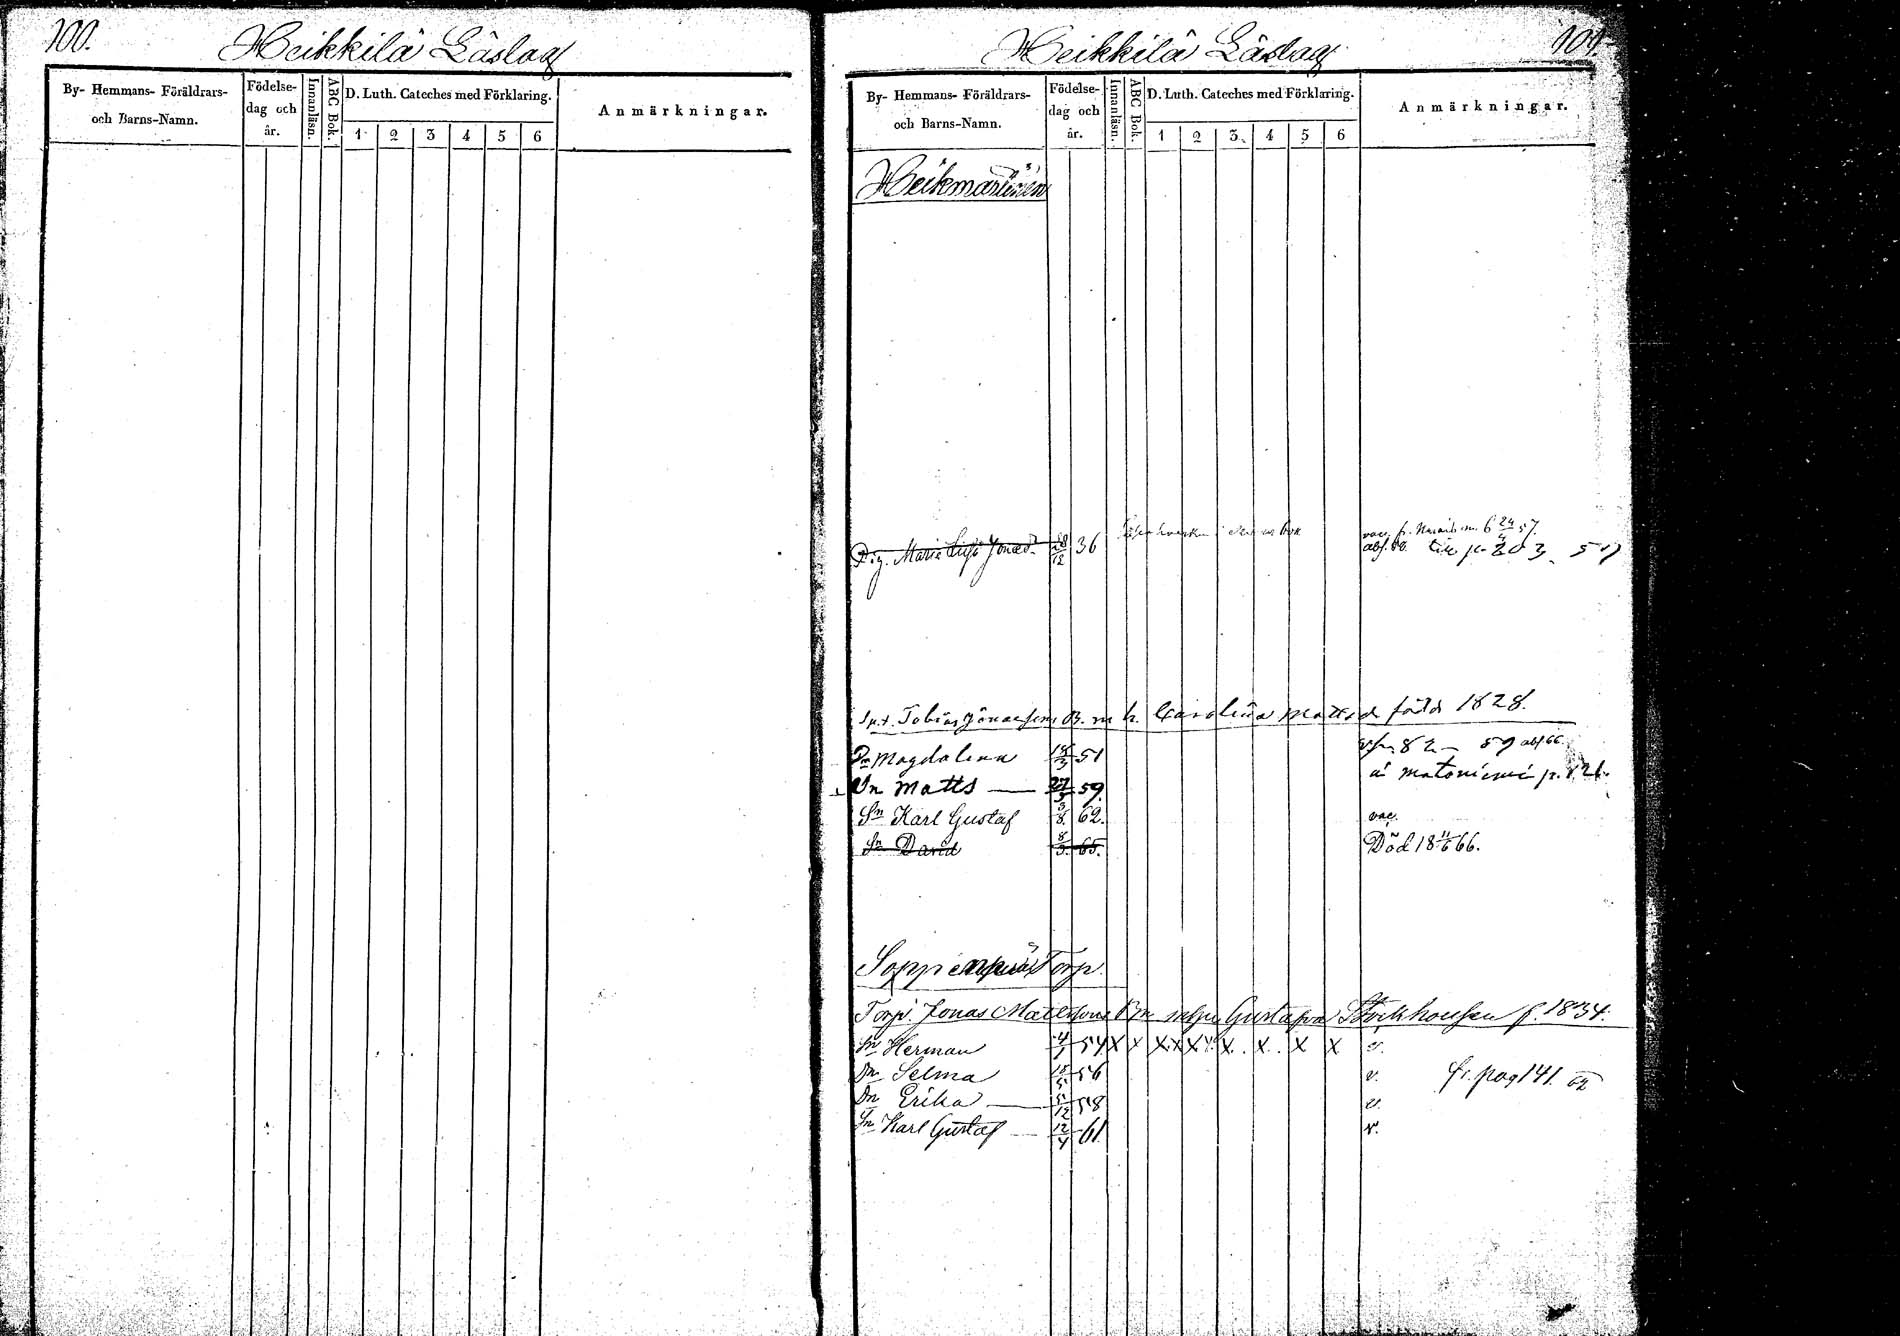 100.
Heikkilä Läslag
By- Hemmans- Föräldrars- och Barns-Namn.
Födelse-dag och år.
Innanläsn.
ABC Bok.
D. Luth. Cateches med Förklaring.
1 2 3 4 5 6
Anmärkningar.
101.
Heikkilä Läslag
By- Hemmans- Föräldrars- och Barns-Namn.
Födelse-dag och år.
Innanläsn.
ABC Bok.
D. Luth. Cateches med Förklaring.
1 2 3 4 5 6
Anmärkningar.
Pig. Maria Jonaed. 28/12 36 vac. 6 24/4 57.
till p. 203
Tobias Carolina Mattsd född 1828.
Dn Magdalena 18/3 51 82 59
Sn Matts 27/5 59. Matoniemi p.
Sn Karl Gustaf 3/8. 62. vac.
Sn David 8/3. 65. Död 18 11/6 66.
Soppenperä Torp
Torp. Jonas Mattsson Gustafva Stockhousen f. 1834.
Sn Herman 4/1 54 X X X X X X X. X. X X v.
Dn Selma 18/5 56 v. fr. pag 141. 62
Dn Erika 5/12 58 v.
Sn Karl Gustaf 12/4 61 v.